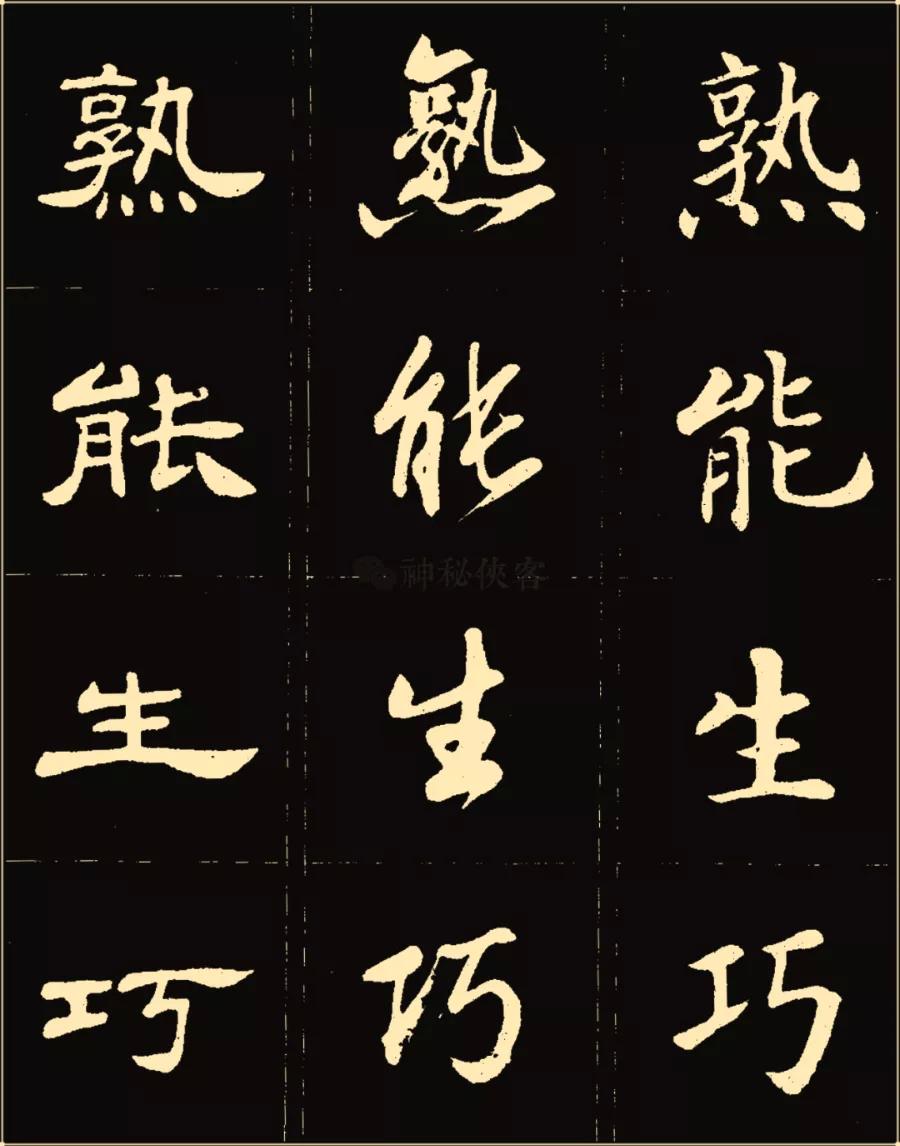 熟能生巧
熟能生巧
熟能生巧
神秘侠客